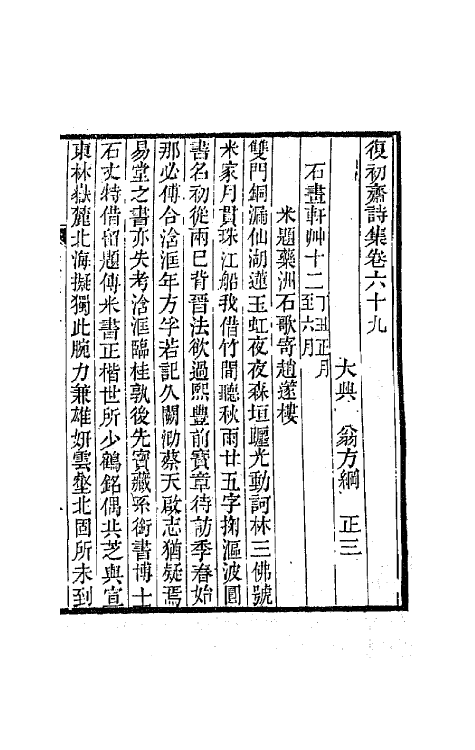 復初齋詩集卷六十九
大興 翁方綱 正三
石畫軒艸十二丁丑正月至六月
米題藥洲石歌寄趙蘧樓
雙門銅漏仙湖蓮玉虹夜夜森垣躔光動訶林三佛號
米家月貫珠江船我借竹聞聽秋雨廿五字掬漚波圓
書名初從兩巳背晉法欲過熙豐前寶章待訪季春始
那必傅合浛洭年方孚若記久闕泐蔡天啟志猶疑焉
易堂之書亦失考浛洭臨桂孰後先寶藏系銜書博士
石丈特借留題傳米書正楷世所少鶴銘偶共芝與宣
東林嶽麓北海擬獨此腕力兼雄妍雲壑北固所未到